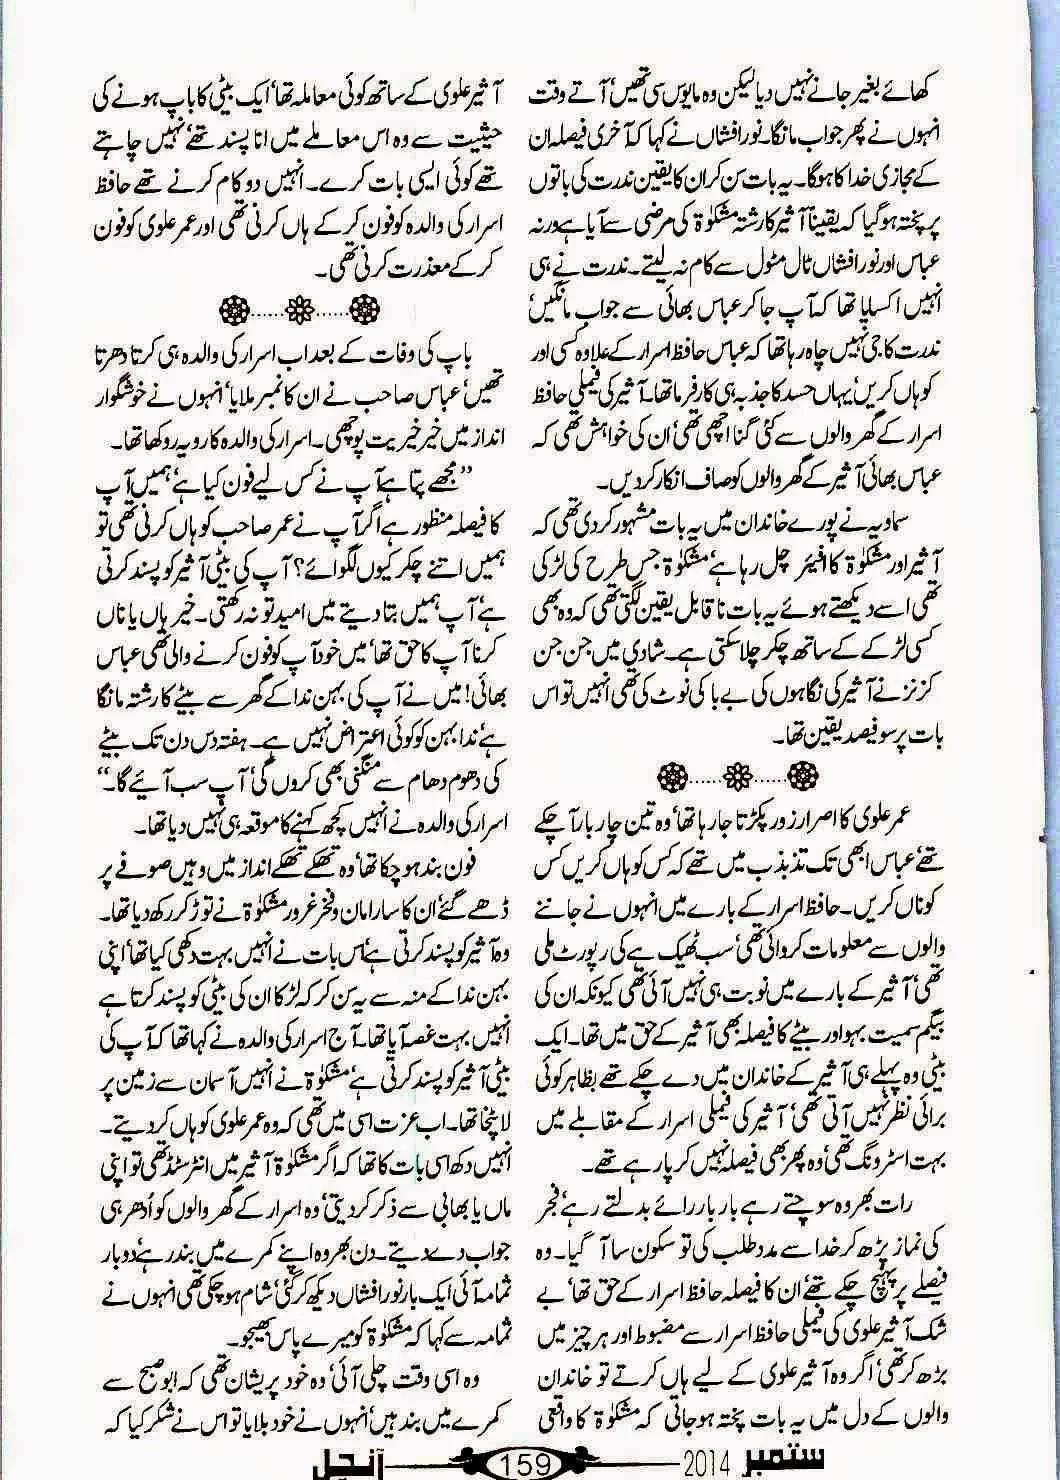 کھائے بغیر جانے نہیں دیا لیکن وہ مایوس سی تھیں‘ آتے وقت
انہوں نے پھر جواب مانگا۔ نورافشاں نے کہا کہ آخری فیصلہ ان
کے مجازی خدا کا ہوگا۔ یہ بات سن کر ان کا یقین ندرت کی باتوں
پر پختہ ہوگیا کہ یقیناً آشیر کا رشتہ مشکوٰۃ کی مرضی سے آیا ہے ورنہ
عباس اور نورافشاں ٹال مٹول سے کام نہ لیتے۔ ندرت نے ہی
انہیں اکسایا تھا کہ آپ جا کر عباس بھائی سے جواب مانگیں‘
ندرت کا جی نہیں چاہ رہا تھا کہ عباس حافظ اسرار کے علاوہ کسی اور
کو ہاں کریں‘ یہاں حسد کا جذبہ ہی کارفرما تھا۔ آشیر کی فیملی حافظ
اسرار کے گھر والوں سے کئی گنا اچھی تھی‘ ان کی خواہش تھی کہ
عباس بھائی آشیر کے گھر والوں کو صاف انکار کردیں۔
سماویہ نے پورے خاندان میں یہ بات مشہور کردی تھی کہ
آشیر اور مشکوٰۃ کا افیئر چل رہا ہے‘ مشکوٰۃ جس طرح کی لڑکی
تھی اسے دیکھتے ہوئے یہ بات ناقابل یقین لگتی تھی کہ وہ بھی
کسی لڑکے کے ساتھ چکر چلا سکتی ہے۔ شادی میں جن جن
کزنز نے آشیر کی نگاہوں کی بے باکی نوٹ کی تھی انہیں تو اس
بات پر سو فیصد یقین تھا۔
عمر علوی کا اصرار زور پکڑتا جارہا تھا‘ وہ تین چار بار آچکے
تھے‘ عباس ابھی تک تذبذب میں تھے کہ کس کو ہاں کریں کس
کو ناں کریں۔ حافظ اسرار کے بارے میں انہوں نے جاننے
والوں سے معلومات کروائی تھی‘ سب ٹھیک ہے کی رپورٹ ملی
تھی‘ آشیر کے بارے میں نوبت ہی نہیں آئی تھی کیونکہ ان کی
بیگم سمیت بہو اور بیٹے کا فیصلہ بھی آشیر کے حق میں تھا۔ ایک
بیٹی وہ پہلے ہی آشیر کے خاندان میں دے چکے تھے بظاہر کوئی
برائی نظر نہیں آتی تھی‘ آشیر کی فیملی اسرار کے مقابلے میں
بہت اسٹرونگ تھی‘ وہ پھر بھی فیصلہ نہیں کر پارہے تھے۔
رات بھر وہ سوچتے رہے بار بار رائے بدلتے رہے‘ فجر
کی نماز پڑھ کر خدا سے مدد طلب کی تو سکون سا آ گیا۔ وہ
فیصلے پر پہنچ چکے تھے‘ ان کا فیصلہ حافظ اسرار کے حق تھا‘ بے
شک آشیر علوی کی فیملی حافظ اسرار سے مضبوط اور ہر چیز میں
بڑھ کر تھی‘ اگر وہ آشیر علوی کے لیے ہاں کرتے تو خاندان
والوں کے دل میں یہ بات پختہ ہوجاتی کہ مشکوٰۃ کا واقعی
آشیر علوی کے ساتھ کوئی معاملہ تھا‘ ایک بیٹی کا باپ ہونے کی
حیثیت سے وہ اس معاملے میں انا پسند تھے‘ نہیں چاہتے
تھے کوئی ایسی بات کرے۔ انہیں دو کام کرنے تھے حافظ
اسرار کی والدہ کو فون کرکے ہاں کرنی تھی اور عمر علوی کو فون
کرکے معذرت کرنی تھی۔
باپ کی وفات کے بعد اب اسرار کی والدہ ہی کرتا دھرتا
تھیں‘ عباس صاحب نے ان کا نمبر ملایا‘ انہوں نے خوشگوار
انداز میں خیر خیریت پوچھی۔ اسرار کی والدہ کا رویہ روکھا تھا۔
”مجھے پتا ہے آپ نے کس لیے فون کیا ہے‘ ہمیں آپ
کا فیصلہ منظور ہے اگر آپ نے عمر صاحب کو ہاں کرنی تھی تو
ہمیں اتنے چکر کیوں لگوائے؟ آپ کی بیٹی آشیر کو پسند کرتی
ہے‘ آپ ہمیں بتا دیتے میں امید تو نہ رکھتی۔ خیر ہاں یا ناں
کرنا آپ کا حق تھا‘ میں خود آپ کو فون کرنے والی تھی عباس
بھائی! میں نے آپ کی بہن ندا کے گھر سے بیٹے کا رشتہ مانگا
ہے‘ ندا بہن کو کوئی اعتراض نہیں ہے۔ ہفتہ دس دن تک بیٹے
کی دھوم دھام سے منگنی بھی کروں گی‘ آپ سب آیئے گا۔“
اسرار کی والدہ نے انہیں کچھ کہنے کا موقعہ ہی نہیں دیا تھا۔
فون بند ہوچکا تھا‘ وہ تھکے تھکے انداز میں وہیں صوفے پر
ڈھے گئے‘ ان کا سارا مان و فخر غرور مشکوٰۃ نے توڑ کر رکھ دیا تھا۔
وہ آشیر کو پسند کرتی ہے‘ اس بات نے انہیں بہت دکھی کیا تھا‘ اپنی
بہن ندا کے منہ سے یہ سن کر کہ لڑکا ان کی بیٹی کو پسند کرتا ہے
انہیں بہت غصہ آیا تھا۔ آج اسرار کی والدہ نے کہا تھا کہ آپ کی
بیٹی آشیر کو پسند کرتی ہے‘ مشکوٰۃ نے انہیں آسمان سے زمین پر
لا پٹخا تھا۔ اب عزت اسی میں تھی کہ وہ عمر علوی کو ہاں کردیتے۔
انہیں دکھ اسی بات کا تھا کہ اگر مشکوٰۃ آشیر میں انٹرسٹڈ تھی تو اپنی
ماں یا بھابی سے ذکر کردیتی‘ وہ اسرار کے گھر والوں کو اُدھر ہی
جواب دے دیتے۔ دن بھر وہ اپنے کمرے میں بند رہے‘ دو بار
ثمامہ آئی ایک بار نورافشاں دیکھ کر گئی‘ شام ہوچکی تھی انہوں نے
ثمامہ سے کہا کہ مشکوٰۃ کو میرے پاس بھیجو۔
وہ اسی وقت چلی آئی‘ وہ خود پریشان تھی کہ ابو صبح سے
کمرے میں بند ہیں‘ انہوں نے خود بلایا تو اس نے شکر کیا کہ
ستمبر 2014 159 آنچل